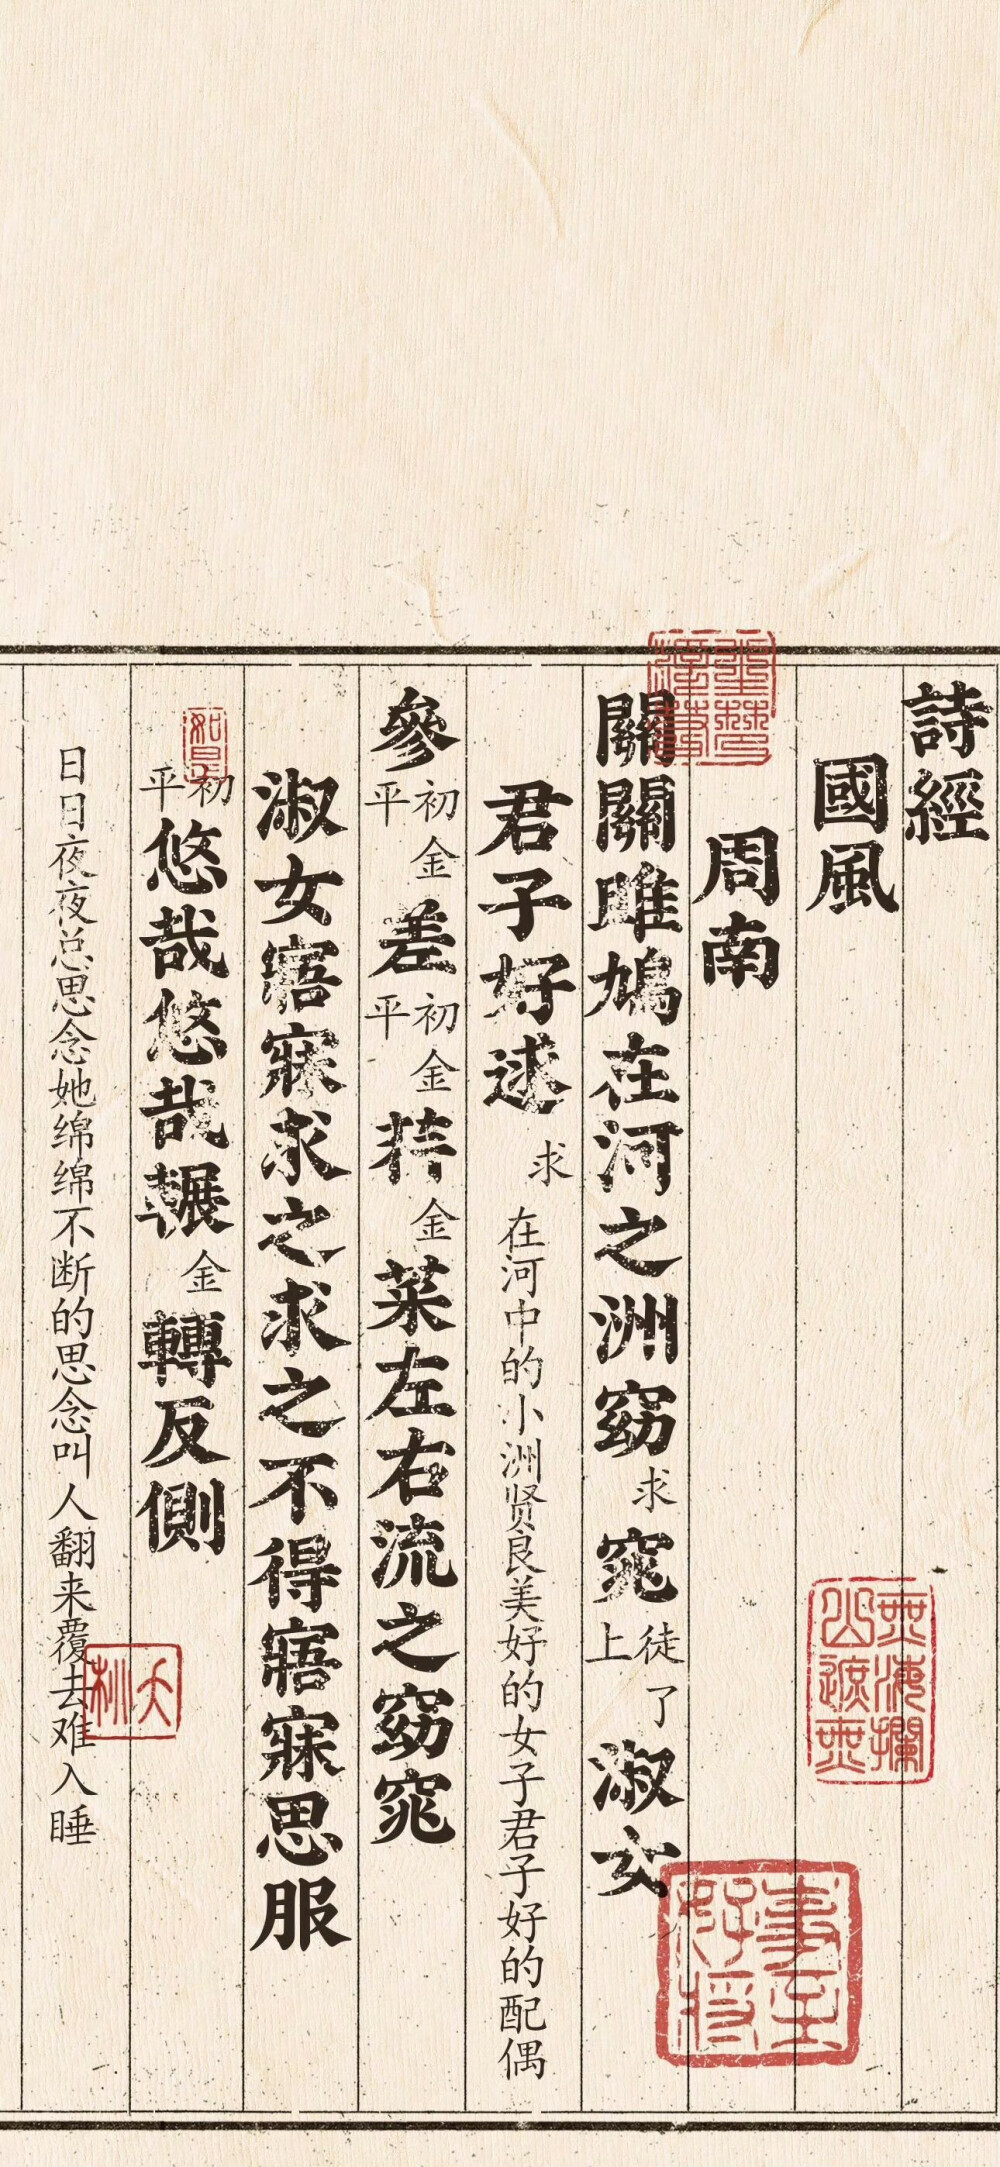 詩經
國風
周南
關關雎鳩在河之洲窈求窕徒了上淑女
君子好逑求在河中的小洲贤良美好的女子君子好的配偶
參初金平差初金平荇金菜左右流之窈窕
淑女寤寐求之求之不得寤寐思服
初平悠哉悠哉輾金轉反側
日日夜夜总思念她绵绵不断的思念叫人翻来覆去难入睡
好事將至